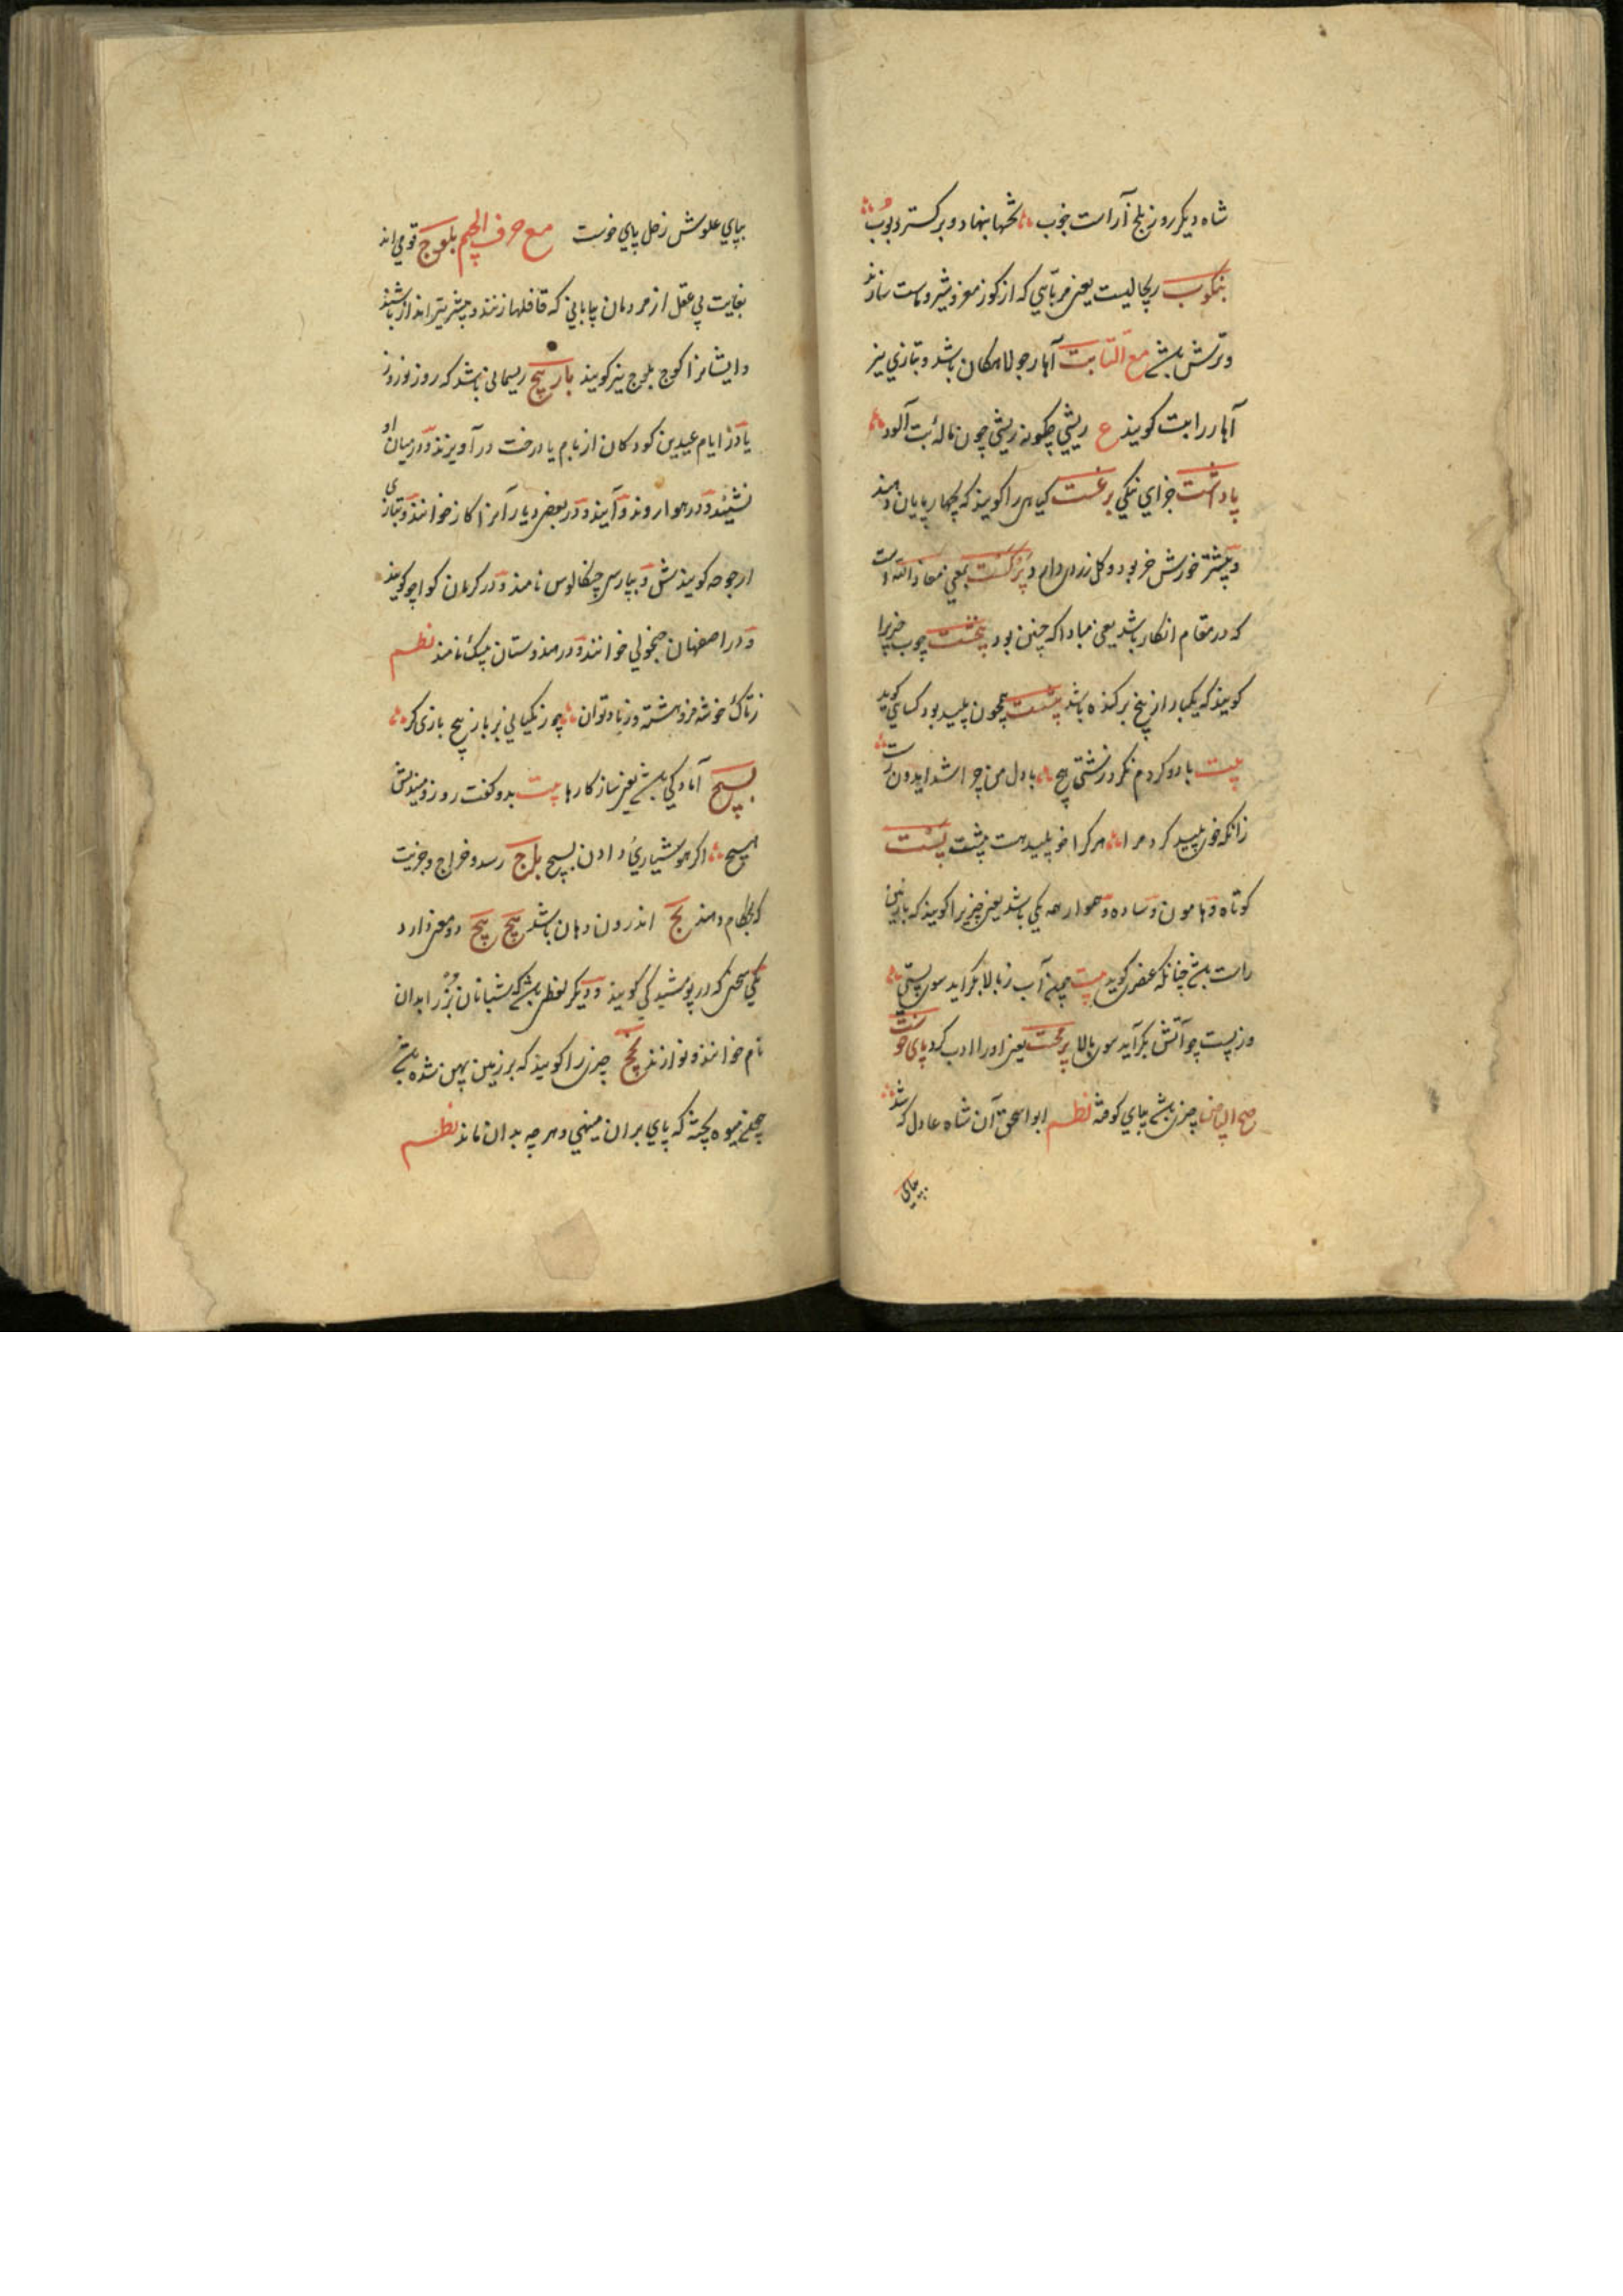 شاه دیکر روز بلخ آراست خوب ؞ تختها بنهاد و بر کسترد بوب ؞
بتکوب ریچالیست یعنی مربائی که از کوز مغز و شیر و ماست سازند
و ترش باشد مع التا بت آهار جولاهکان باشد و بتازی نیز
آهار را بت کویند ع ریشی چکونه ریشی چون ماله بت آلود ؞
پاداشت جزای نیکی برغست کیاهی را کویند که بچهار پایان دهند
و بیشتر خورش خر بود و کل زرد دارد و پرکست بمعنی معاذ الله است
که در مقام انکار باشد یعنی مبادا که چنین بود پیخست چوب چیزیرا
کویند که یکبار از بیخ برکنده باشد پشت همچون پلید بود کسایی کوید
بیت بادو کردم نکرد زشتی هیچ ؞ با دل من چرا شد ایدون رست ؞
زانکه خوی پلید کرد مرا ؞ هر کرا خو پلید هست پشت پست
کوتاه و هامون و ساده و هموار همه یکی باشد یعنی چیزیرا کویند که با زمین
راست باشد چنانکه عنصری کوید بیت چو آب ز بالا بکراید سوی پستی ؞
وز پست چو آتش بکراید سوی بالا پرمخت یعنی او را ادب کرد پای خوست
چیزی باشد بپای کوفته نظم ابو اسحق آن شاه عادل که شد ؞
بپای
بپای علوش زحل پای خوست مع حرف الجیم بلوج قومی اند
بغایت بی عقل از مردمان بیابانی که قافلها زنند و بیشتر تیر انداز باشند
و ایشانرا کوج بلوج نیز کویند باز پیچ ریسمانی باشد که روز نوروز
یا در ایام عیدین کودکان از بام یا درخت در آویزند و در میان او
نشینند و در هوا روند و آیند و در بعضی دیار آنرا کاز خوانند و بتازی
ارجوحه کویند و بپارسی چنکالوس نامند و در کرمان کواچو کویند
و در اصفهان چنچولی خوانند و در هندوستان پینک نامند نظم
ز تاک خوشه فرو هشته و ز باد توان ؞ چو زنکیانی بر باز پیچ بازی کر ؞
بسیج آمادکی باشد یعنی ساز کارها بیت بدو کفت روزو میندیش
هیچ ؞ اکر هوشیاری دادن بسیج باج رسد و خراج و جزیت
که بحکام دهند بج اندرون دهان باشد پچ پچ دو معنی دارد
یکی سخن که در پوشیدکی کویند و دیکر لفظی باشد که شبانان بز را بدان
نام خوانند و نوازند پخچ چیزی را کویند که بر زمین پهن شده باشد
چنانکه میوه پخته که پای بران مینهی و هر چه بدان ماند نظم